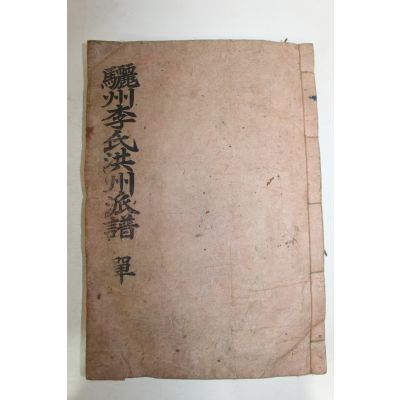 驪州李氏洪州派譜 單